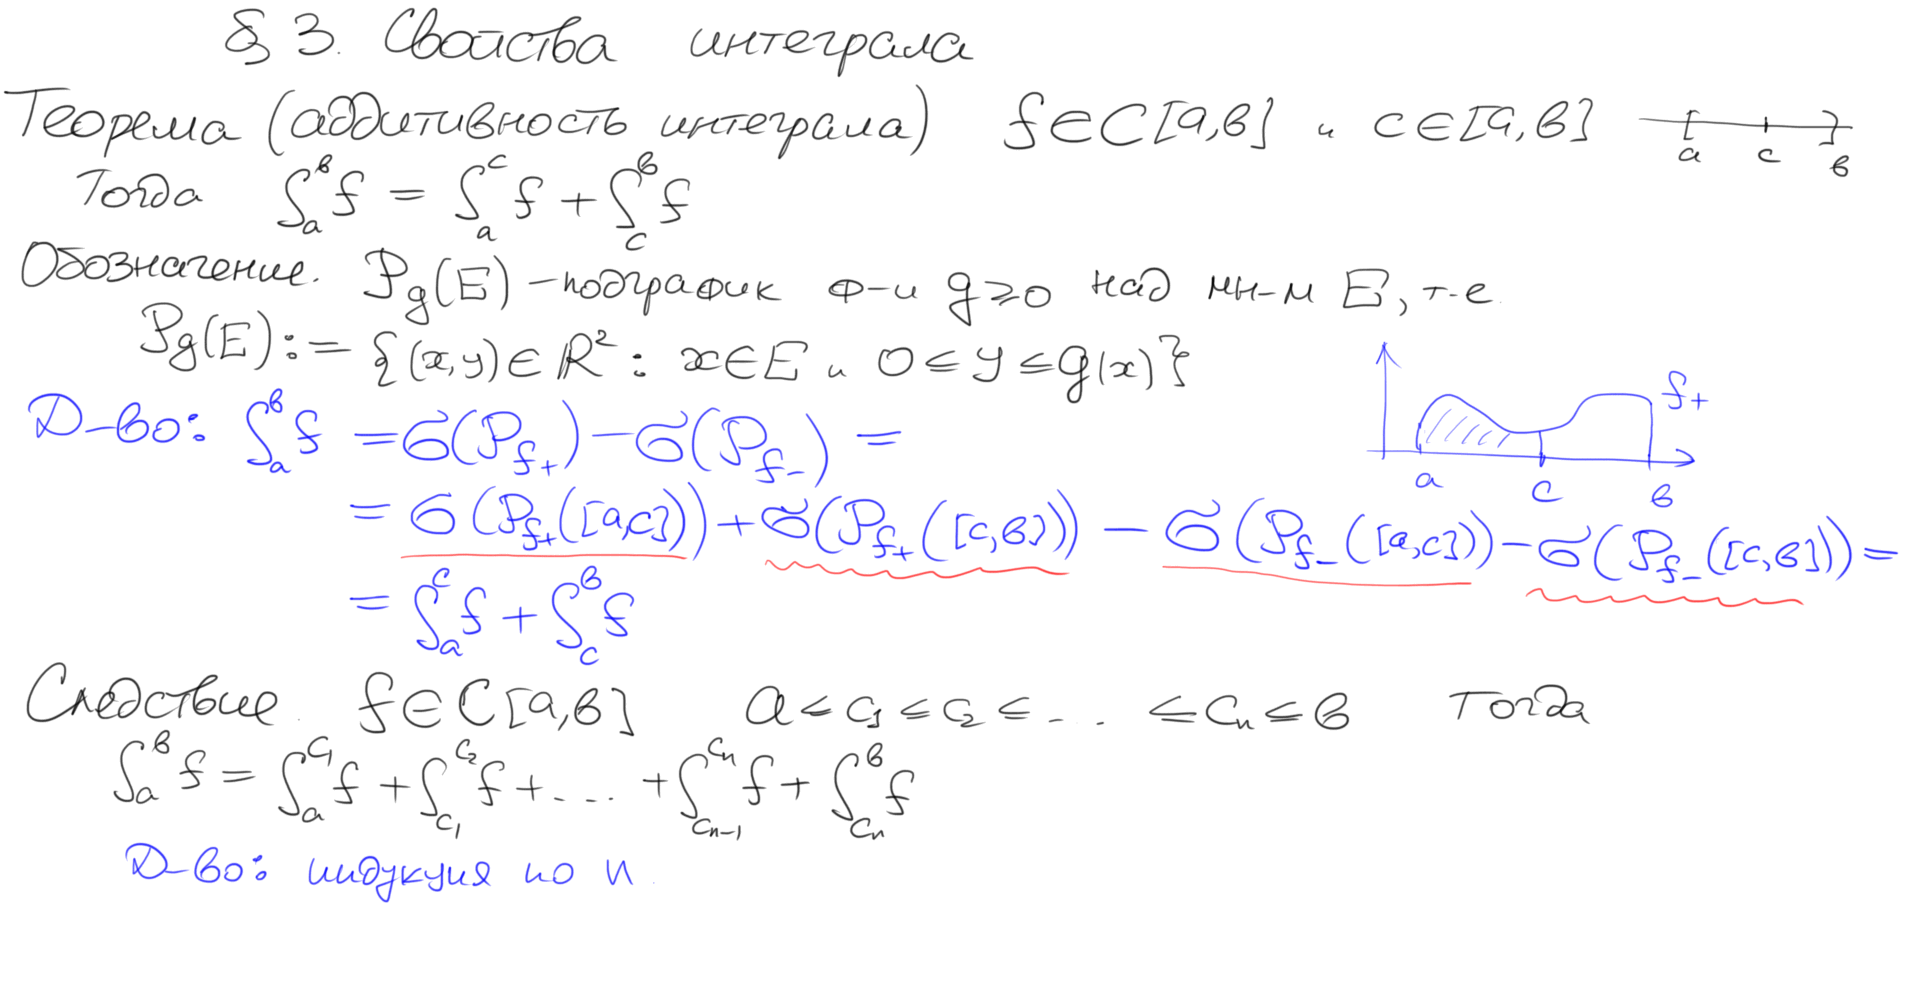 § 3. Свойства интеграла
Теорема (аддитивность интеграла) f∈C[a,b] и c∈[a,b]
a c b
Тогда ∫_a^b f = ∫_a^c f + ∫_c^b f
Обозначение. P_g(E) – подграфик ф-и g⩾0 над мн-м E, т.е.
P_g(E) := {(x,y)∈R² : x∈E и 0⩽y⩽g(x)}
Д-во: ∫_a^b f = σ(P_{f+}) − σ(P_{f−}) =
f+
a c b
= σ(P_{f+}([a,c])) + σ(P_{f+}([c,b])) − σ(P_{f−}([a,c])) − σ(P_{f−}([c,b])) =
= ∫_a^c f + ∫_c^b f
Следствие. f∈C[a,b] a ⩽ c₁ ⩽ c₂ ⩽ ... ⩽ cₙ ⩽ b Тогда
∫_a^b f = ∫_a^{c₁} f + ∫_{c₁}^{c₂} f + .... + ∫_{cₙ₋₁}^{cₙ} f + ∫_{cₙ}^b f
Д-во: индукция по n